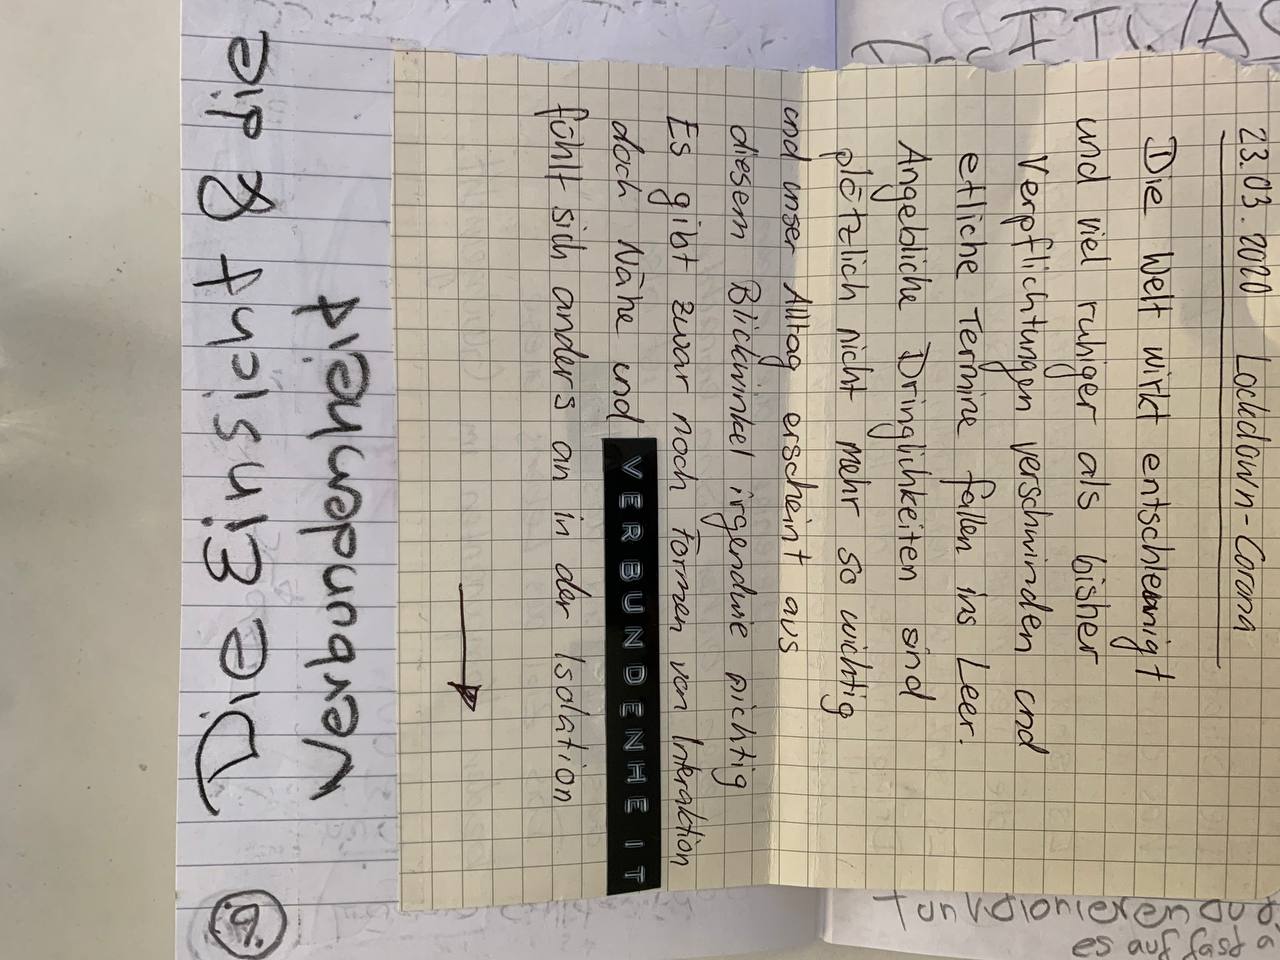 23.03.2020 Lockdown-Corona
Die Welt wirkt entschleunigt
und viel ruhiger als bisher
Verpflichtungen verschwinden und
etliche Termine fallen ins Leer.
Angebliche Dringlichkeiten sind
plötzlich nicht mehr so wichtig
und unser Alltag erscheint aus
diesem Blickwinkel irgendwie nichtig
Es gibt zwar noch Formen von Interaktion
doch Nähe und VERBUNDENHEIT
fühlt sich anders an in der Isolation
Die Einsicht & die
Verbundenheit
funktionieren
es auf fast a